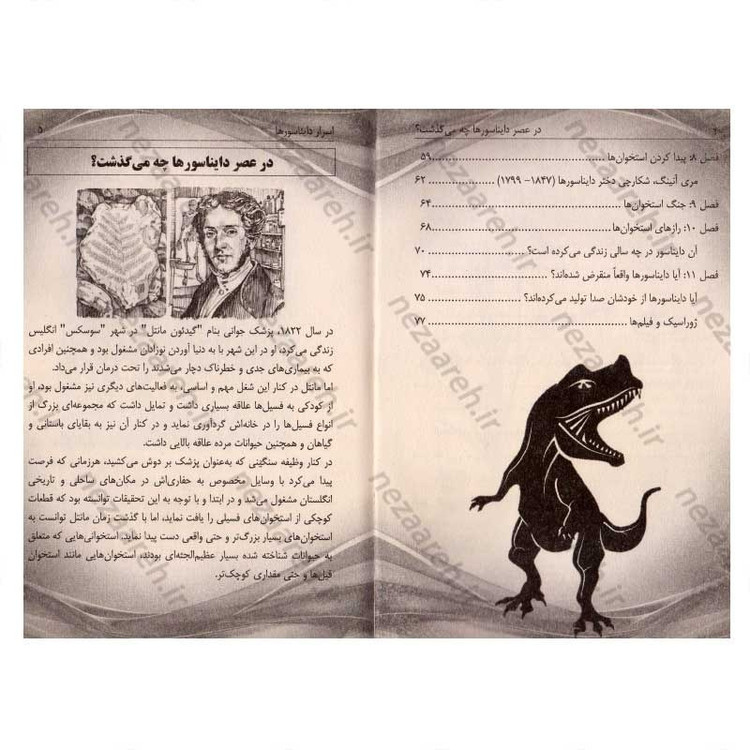 ۴ در عصر دایناسورها چه می‌گذشت؟
فصل ۸: پیدا کردن استخوان‌ها ................................................ ۵۹
مری آنینگ، شکارچی دختر دایناسورها (۱۸۴۷- ۱۷۹۹) .................. ۶۲
فصل ۹: جنگ استخوان‌ها ................................................ ۶۴
فصل ۱۰: رازهای استخوان‌ها ................................................ ۶۸
آن دایناسور در چه سالی زندگی می‌کرده است؟ ........................ ۷۰
فصل ۱۱: آیا دایناسورها واقعاً منقرض شده‌اند؟ ........................ ۷۴
آیا دایناسورها از خودشان صدا تولید می‌کرده‌اند؟ .................... ۷۵
ژوراسیک و فیلم‌ها ................................................ ۷۷
اسرار دایناسورها ۵
در عصر دایناسورها چه می‌گذشت؟
در سال ۱۸۲۲، پزشک جوانی بنام "گیدئون مانتل" در شهر "سوسکس" انگلیس
زندگی می‌کرد، او در این شهر با به دنیا آوردن نوزادان مشغول بود و همچنین افرادی
که به بیماری‌های جدی و خطرناک دچار می‌شدند را تحت درمان قرار می‌داد.
اما مانتل در کنار این شغل مهم و اساسی، به فعالیت‌های دیگری نیز مشغول بود، او
از کودکی به فسیل‌ها علاقه بسیاری داشت و تمایل داشت که مجموعه‌ای بزرگ از
انواع فسیل‌ها را در خانه‌اش گردآوری نماید و در کنار آن نیز به بقایای باستانی و
گیاهان و همچنین حیوانات مرده علاقه بالایی داشت.
در کنار وظیفه سنگینی که به‌عنوان پزشک بر دوش می‌کشید، هرزمانی که فرصت
پیدا می‌کرد با وسایل مخصوص به حفاری‌اش در مکان‌های ساحلی و تاریخی
انگلستان مشغول می‌شد و در ابتدا و با توجه به این تحقیقات توانسته بود که قطعات
کوچکی از استخوان‌های فسیلی را یافت نماید، اما با گذشت زمان مانتل توانست به
استخوان‌های بسیار بزرگ‌تر و حتی واقعی دست پیدا نماید. استخوانی‌هایی که متعلق
به حیوانات شناخته شده بسیار عظیم‌الجثه‌ای بودند، استخوان‌هایی مانند استخوان
فیل‌ها و حتی مقداری کوچک‌تر.
nezaareh.ir